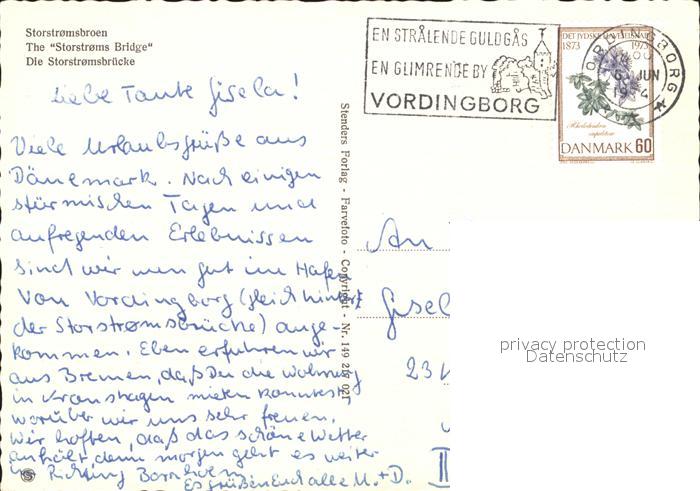 Storstrømsbroen
The "Storstrøms Bridge"
Die Storstrømsbrücke
Liebe Tante Gisela!
Viele Urlaubsgrüße aus
Dänemark. Nach einigen
stürmischen Tagen und
aufregenden Erlebnissen
sind wir nun gut im Hafen
von Vordingborg (gleich hinter
der Storstrømsbrücke) ange-
kommen. Eben erfuhren wir
aus Bremen, daß Du die Wohnung
in Kronshagen mieten konntest,
worüber wir uns sehr freuen.
Wir hoffen, daß das schöne Wetter
anhält denn morgen geht es weiter
in Richtung Bornholm.
Es grüßen Euch alle U. + D.
Stenders Forlag - Farvefoto - Copyright - Nr. 149 217 021
EN STRÅLENDE GULDGÅS
EN GLIMRENDE BY
VORDINGBORG
DET JYDSKE HAVESELSKAB
1873 1973
DANMARK 60
VORDINGBORG
JUN
An
Gisel
23
II
privacy protection
Datenschutz